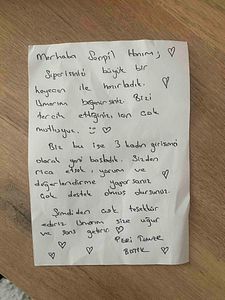 Merhaba Songül Hanım; ♡
Siparişinizi büyük bir
heyecan ile hazırladık.
Umarım beğenirsiniz. Bizi
tercih ettiğiniz için çok
mutluyuz. ☺ ♡
Biz bu işe 3 kadın girişimci
olarak yeni başladık. Sizden
rica etsek, yorum ve
değerlendirme yaparsanız
çok destek olmuş olursunuz.
Şimdiden çok teşekkür
ederiz. Umarım size uğur
ve şans getirir. ♡
BUTİK